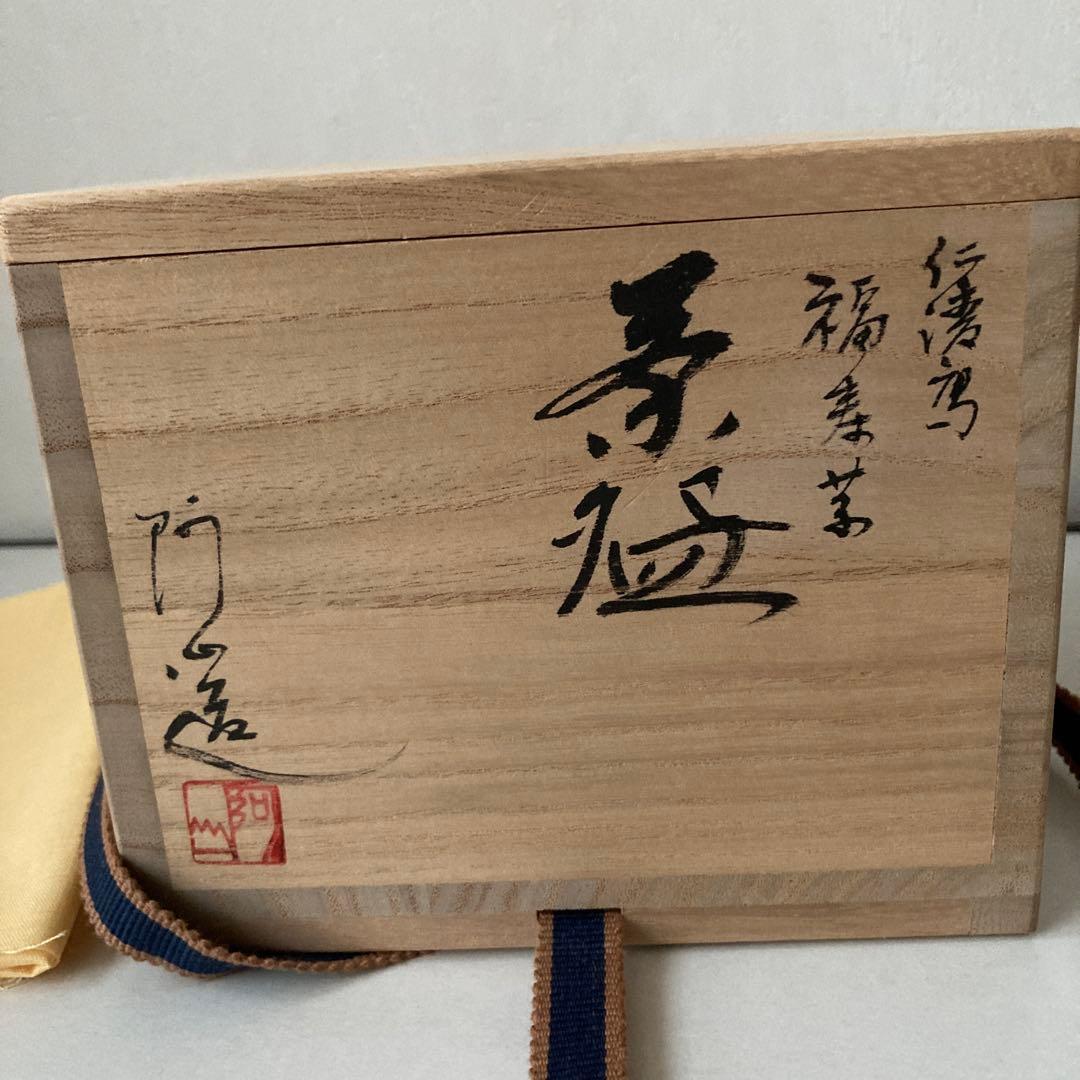 仁清写
福寿草
茶碗
阿山造
阿山